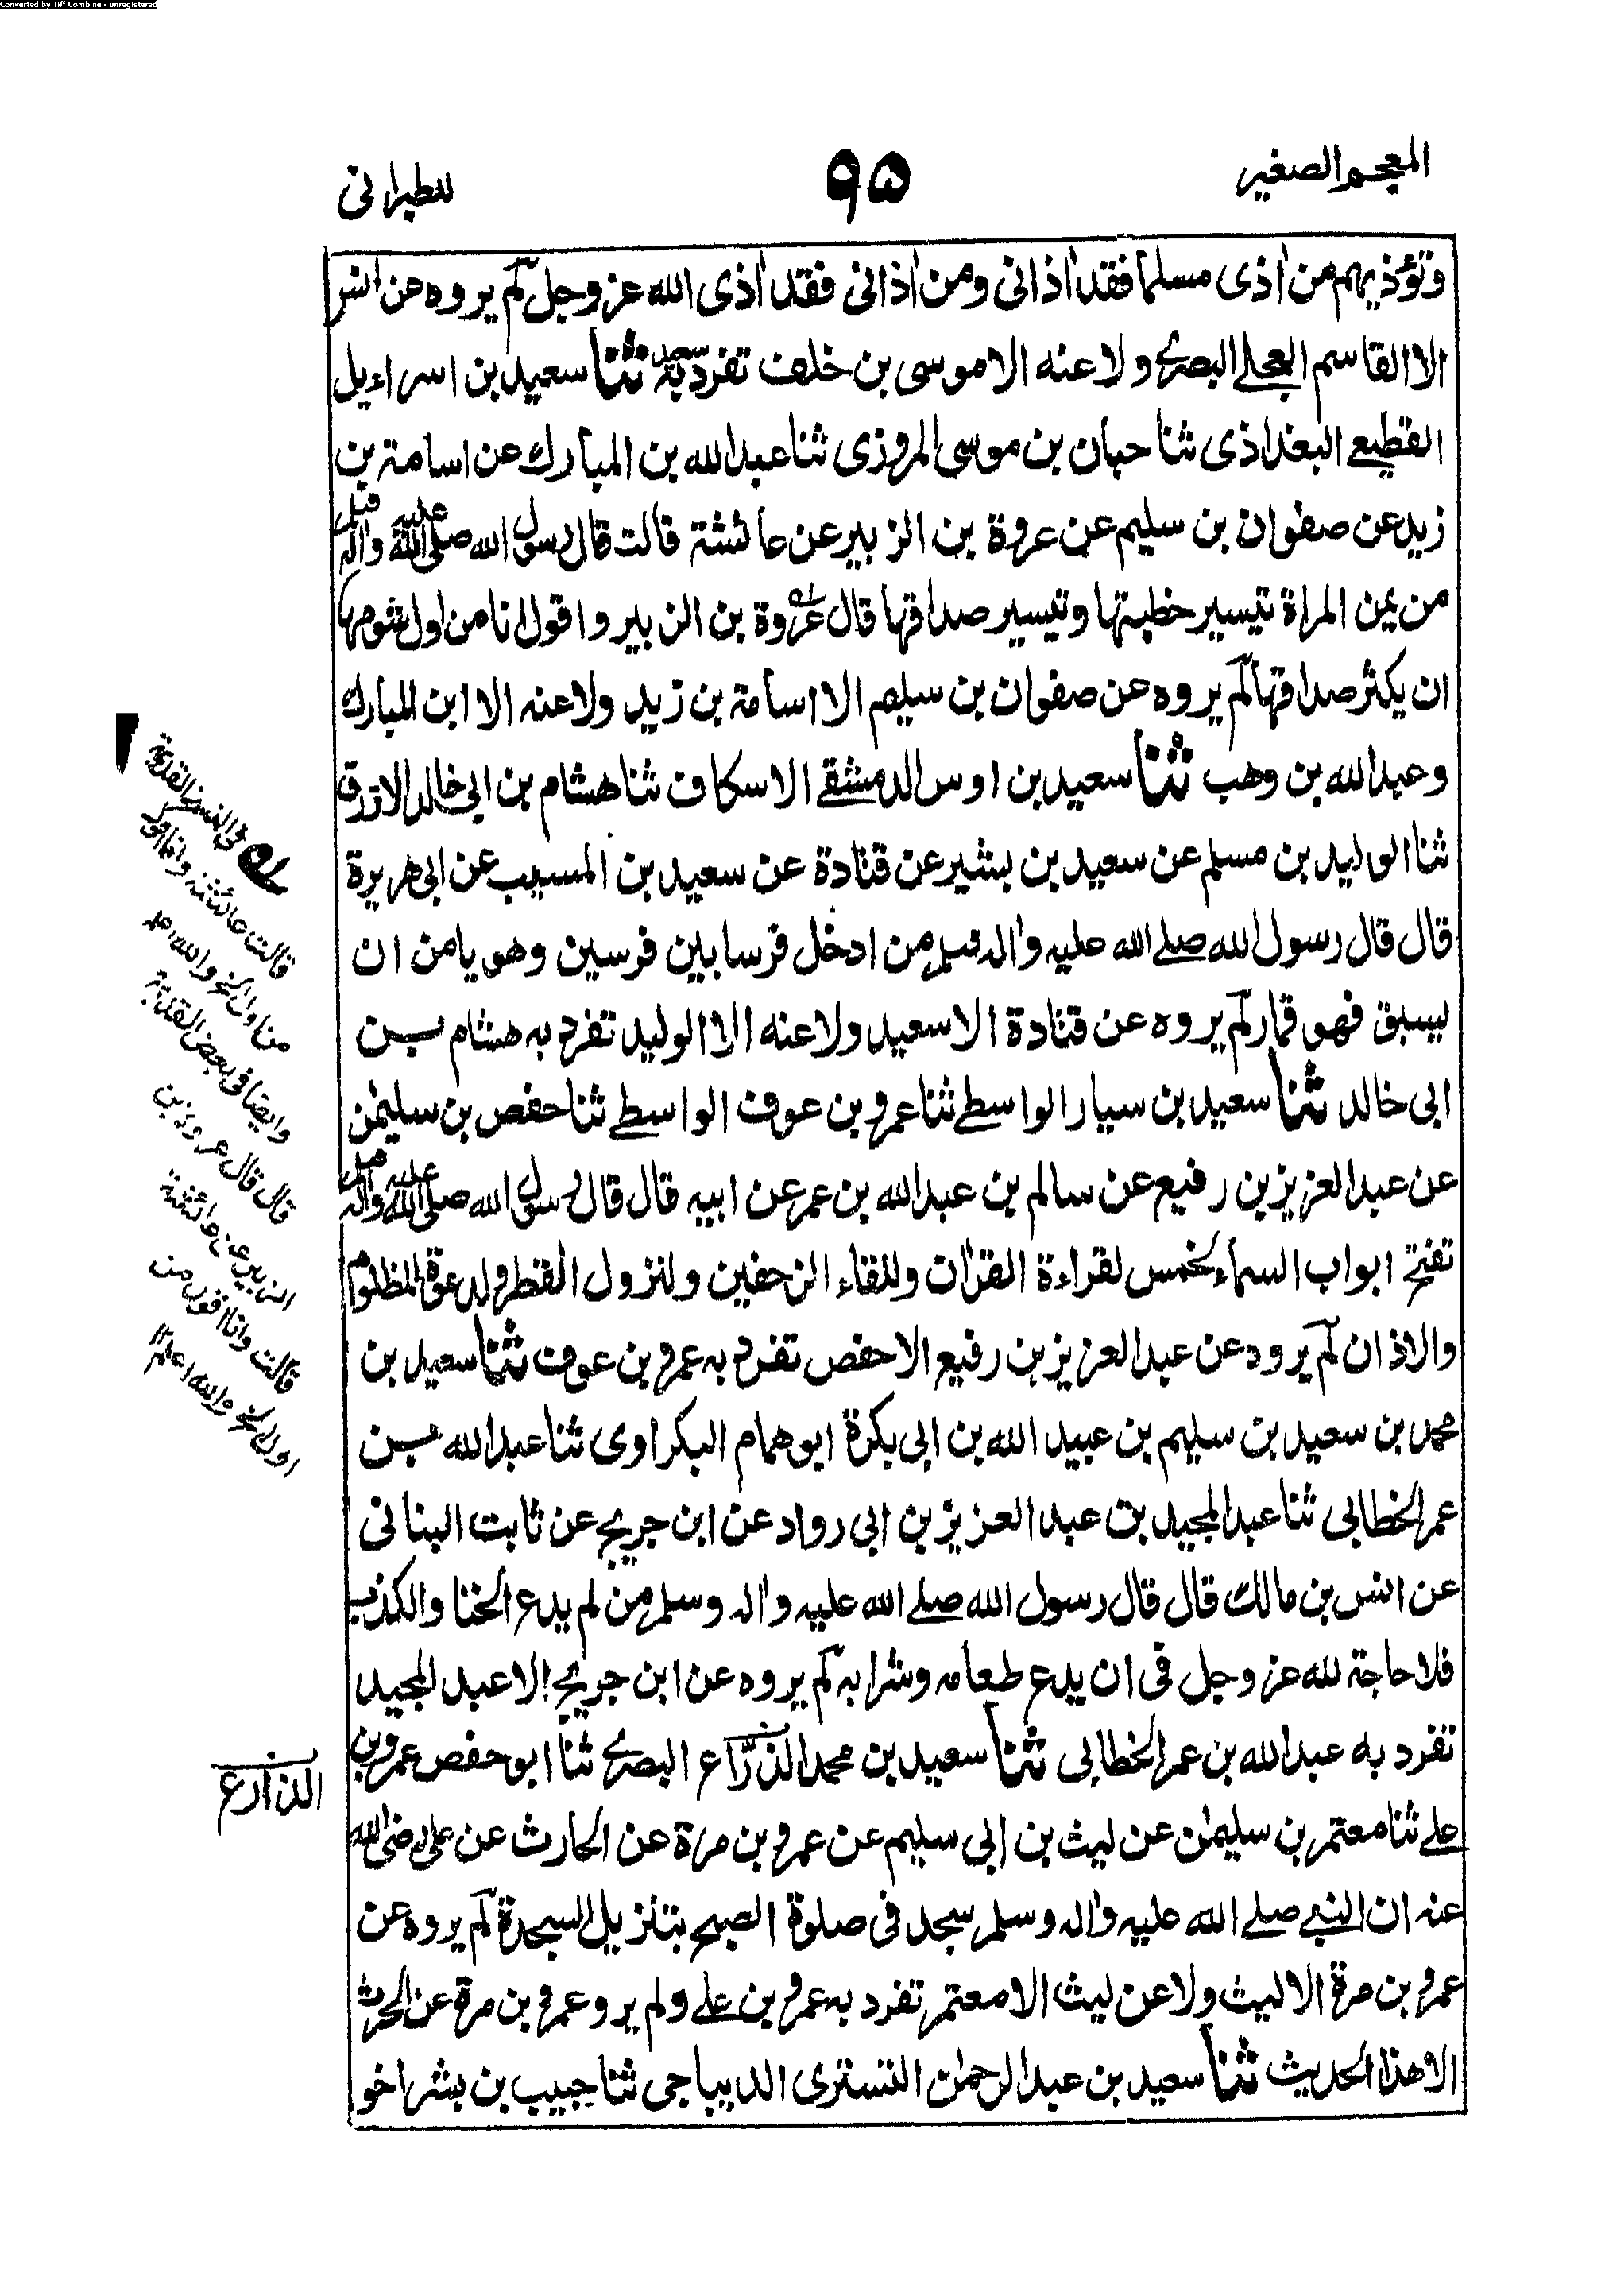 Converted by Tiff Combine - unregistered
المعجم الصغير
٩٥
للطبرانى
وتؤذيهم من اذى مسلما فقد اذانى ومن اذانى فقد اذى الله عز وجل لم يروه عن انس
الا القاسم العجلے البصرے ولا عنه الا موسى بن خلف تفرد به سعيد ثنا سعيد بن اسراءيل
القطيعے البغداذى ثنا حبان بن موسى المروزى ثنا عبد الله بن المبارك عن اسامة بن
زيد عن صفوان بن سليم عن عروة بن الزبير عن عائشة قالت قال رسول الله صلى الله عليه واله
من يمن المراة تيسير خطبتها وتيسير صداقها قال عروة بن الزبير واقول انا من اول شومها
ان يكثر صداقها لم يروه عن صفوان بن سليم الا اسامة بن زيد ولا عنه الا ابن المبارك
وعبد الله بن وهب ثنا سعيد بن اوس الدمشقے الاسكاف ثنا هشام بن ابى خالد الازرق
ثنا الوليد بن مسلم عن سعيد بن بشير عن قتادة عن سعيد بن المسيب عن ابى هريرة
قال قال رسول الله صلے الله عليه واله وسلم من ادخل فرسا بين فرسين وهو يامن ان
يسبق فهو قمار لم يروه عن قتادة الا سعيد ولا عنه الا الوليد تفرد به هشام بن
ابى خالد ثنا سعيد بن سيار الواسطے ثنا عمرو بن عوف الواسطے ثنا حفص بن سليمٰن
عن عبد العزيز بن رفيع عن سالم بن عبد الله بن عمر عن ابيه قال قال رسول الله صلى الله عليه واله
تفتح ابواب السماء لخمس لقراءة القراٰن وللقاء الزحفين ولنزول القطر ولدعوة المظلوم
والاذان لم يروه عن عبد العزيز بن رفيع الا حفص تفرد به عمرو بن عوف ثنا سعيد بن
محمد بن سعيد بن سليم بن عبيد الله بن ابى بكرة ابو همام البكراوى ثنا عبد الله بن
عمر الخطابى ثنا عبد المجيد بن عبد العزيز بن ابى رواد عن ابن جريج عن ثابت البنانى
عن انس بن مالك قال قال رسول الله صلے الله عليه واله وسلم من لم يدع الخنا والكذب
فلا حاجة لله عز وجل فى ان يدع طعامه وشرابه لم يروه عن ابن جريج الا عبد المجيد
تفرد به عبد الله بن عمر الخطابى ثنا سعيد بن محمد الذرّاع البصرے ثنا ابو حفص عمرو بن
علے ثنا معتمر بن سليمٰن عن ليث بن ابى سليم عن عمرو بن مرة عن الحارث عن على رضى الله
عنه ان النبے صلے الله عليه واله وسلم سجد فى صلوة الصبح بتنزيل السجدة لم يروه عن
عمرو بن مرة الا ليث ولا عن ليث الا معتمر تفرد به عمرو بن علے ولم يرو عمرو بن مرة عن الحرث
الا هذا الحديث ثنا سعيد بن عبد الرحمٰن التسترى الديباجى ثنا حبيب بن بشر اخو
فى النسخ القديمة
قالت عائشة وانا اقول
وايضا فى بعض القديمة
قال قال عروة بن
الزبير عن عائشة
قالت وانا اقول من
اول الخ والله اعلم ١٢
الذارع